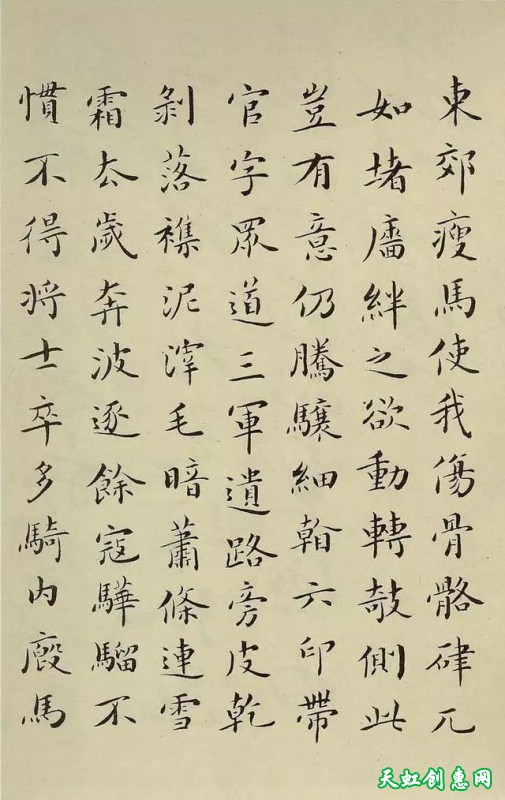 東郊瘦馬使我傷骨骼硉兀
如堵牆絆之欲動轉欹側此
豈有意仍騰驤細看六印帶
官字眾道三軍遺路旁皮乾
剝落雜泥滓毛暗蕭條連雪
霜去歲奔波逐餘寇驊騮不
慣不得將士卒多騎內廄馬
天虹创惠网